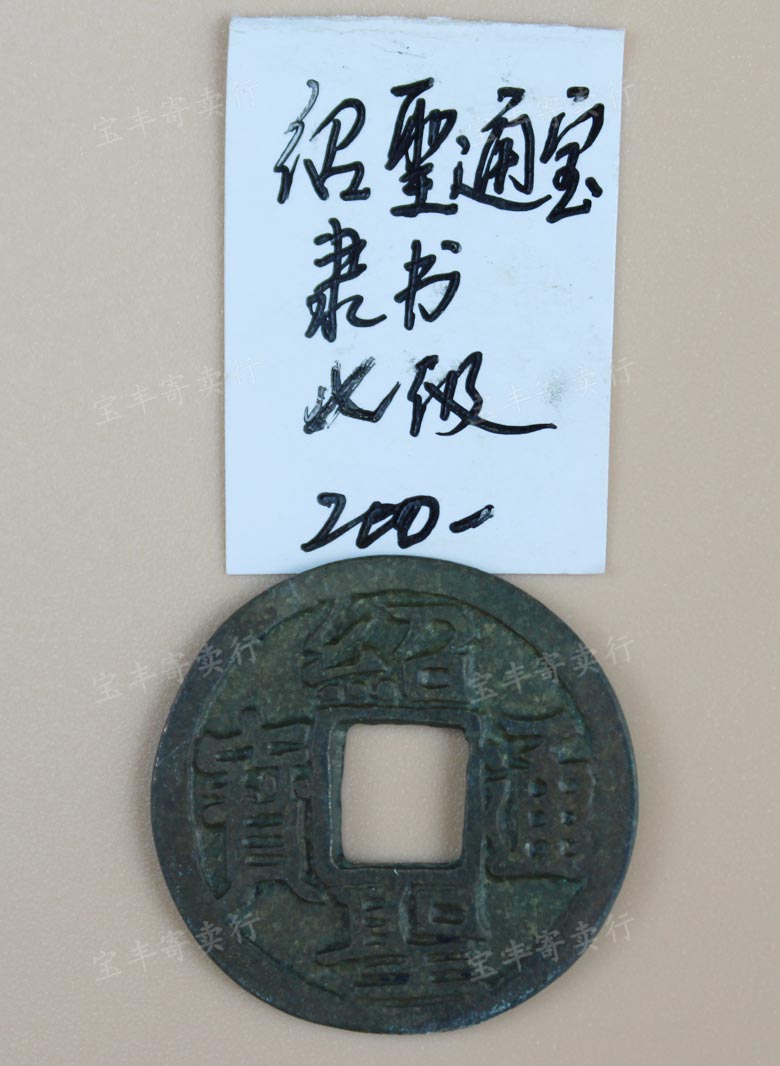 绍聖通宝
隶书
七级
200-
紹聖通寶
宝丰寄卖行
宝丰寄卖行
宝丰寄卖行
宝丰寄卖行
宝丰寄卖行
宝丰寄卖行
宝丰寄卖行
宝丰寄卖行